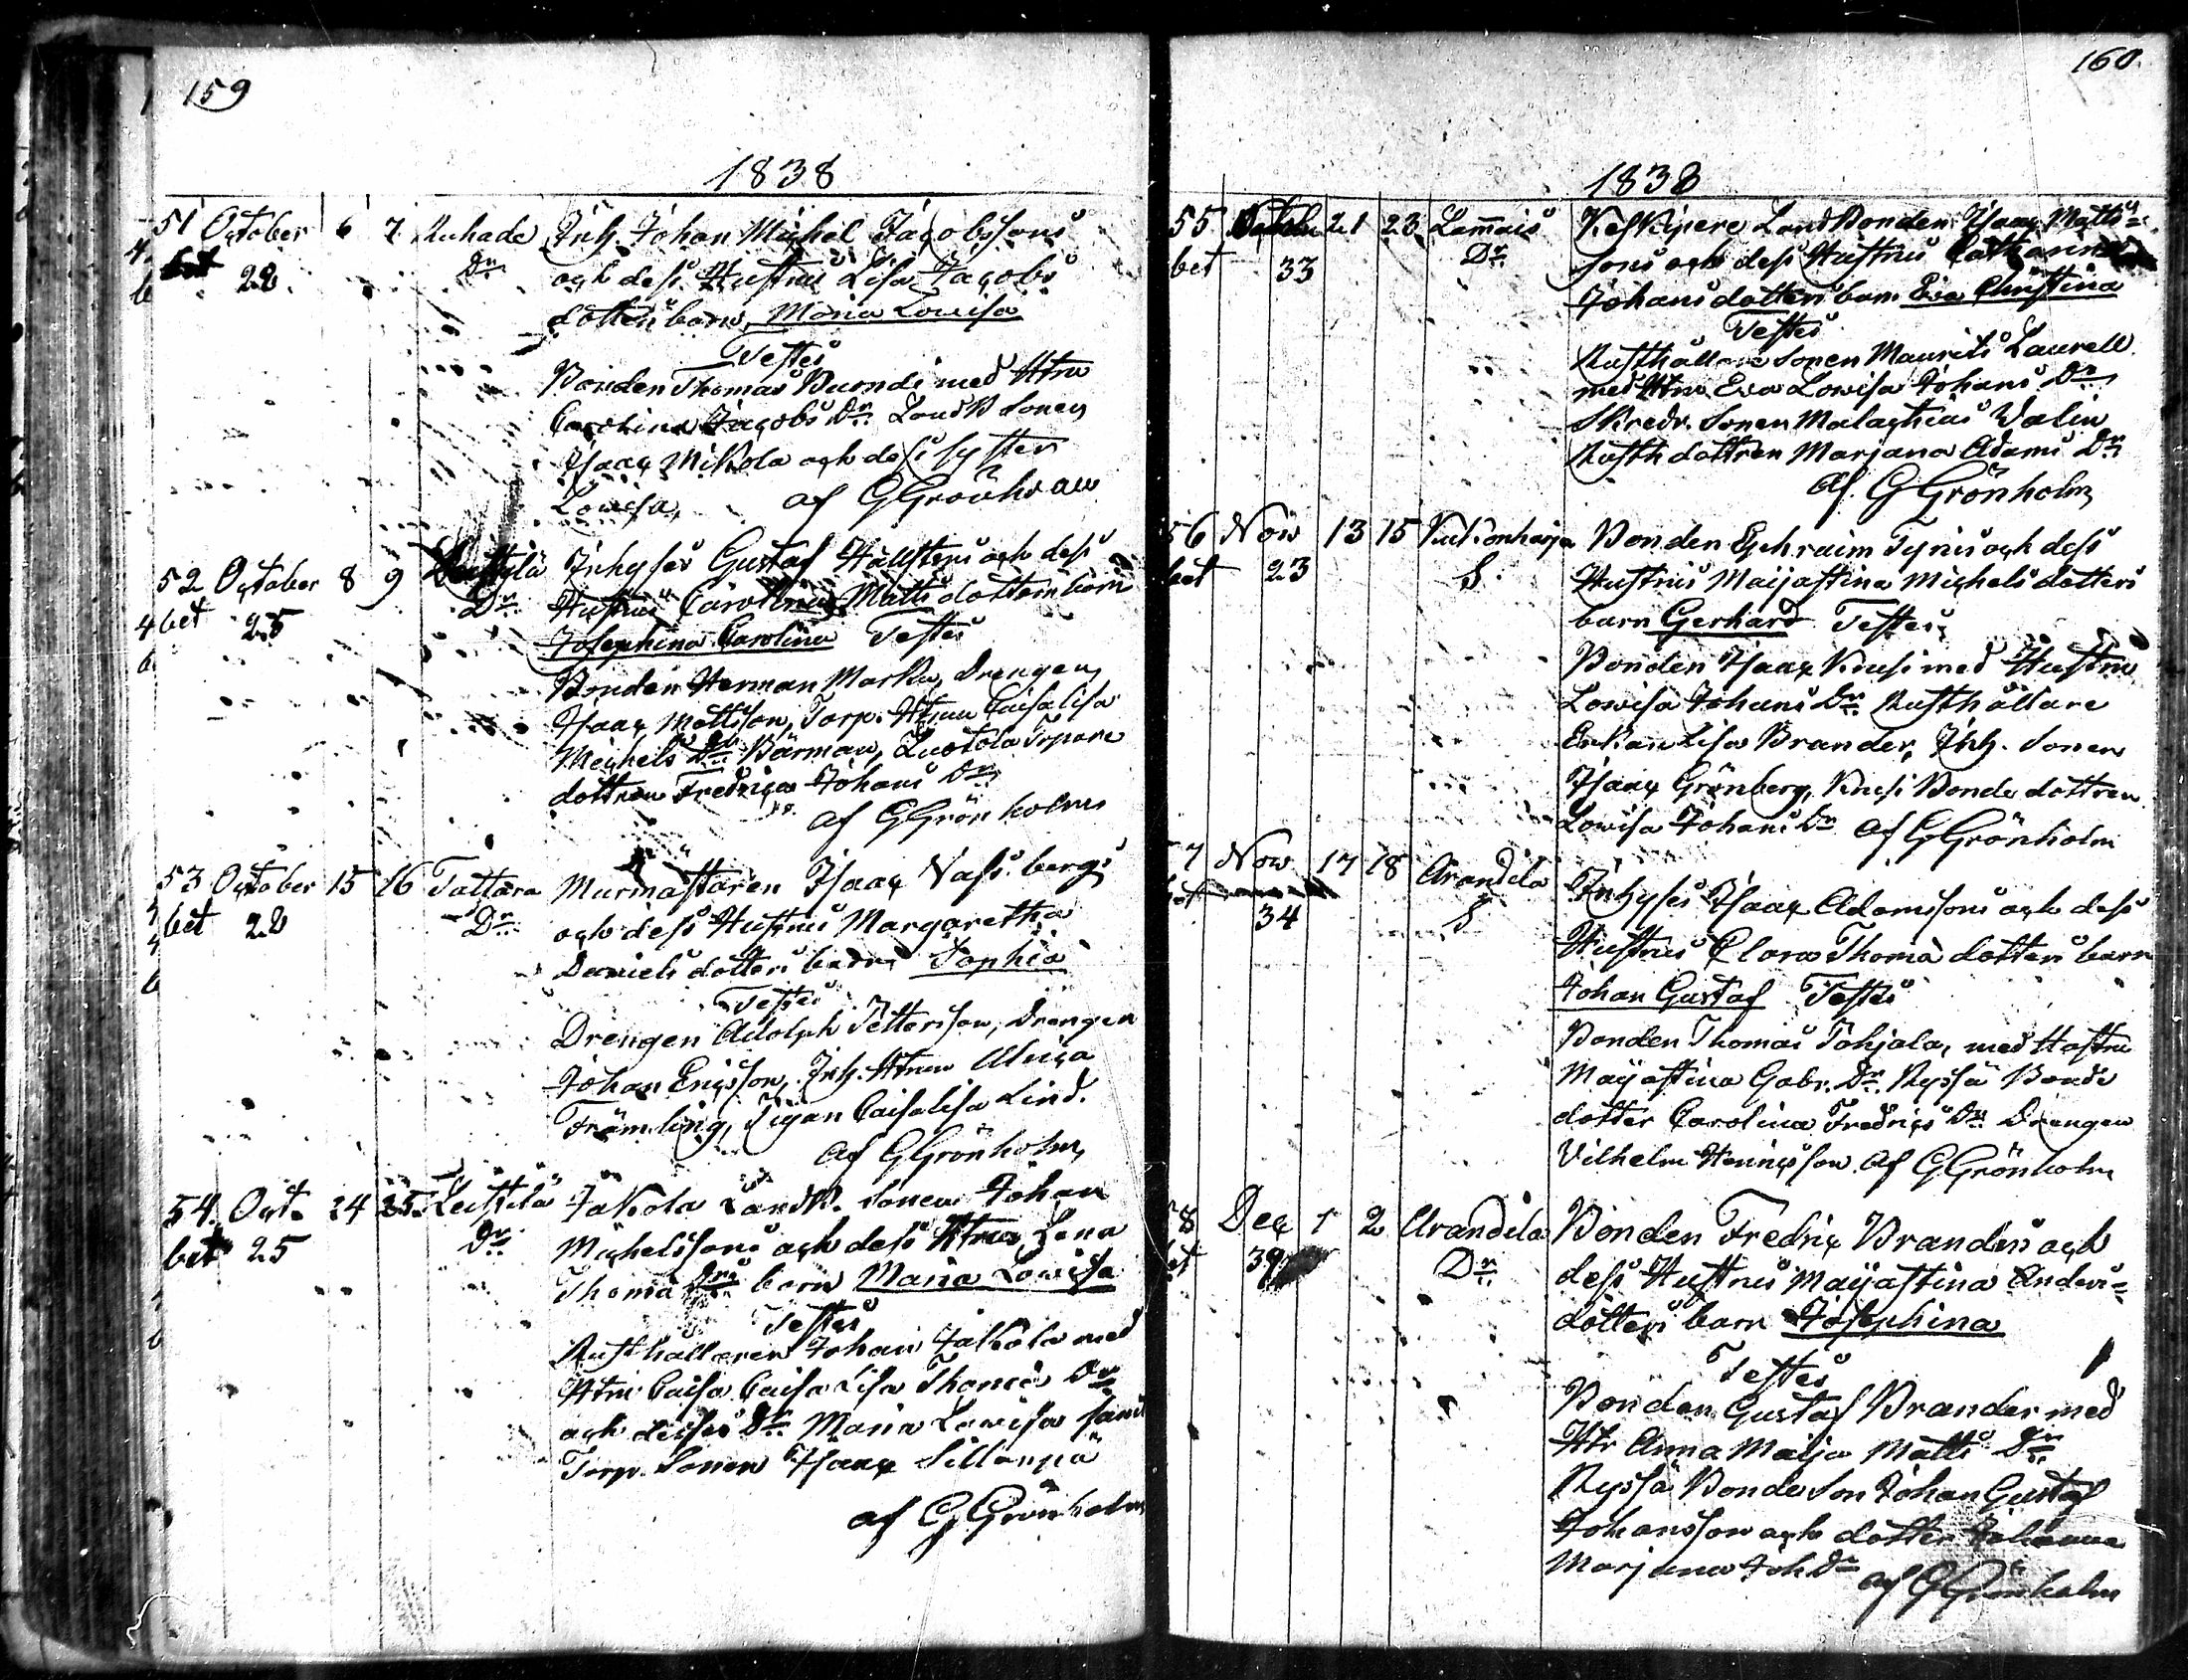 159
1838
51 October 6 7 Ruhade Inh. Johan Michel Jacobssons
bet 22 Dr och dess Hustrus Lisa Jacobs
dotters barn Maria Lowisa
Testes
Bonden Thomas Buondi med Htru
Carolina Jacobs Dr Landb Sonen
Isaac Mikola och dess syster
Lowisa, af G Grönholm
52 October 8 9 Inhyses Gustaf Hällstens och dess
bet 25 Dr Hustrus Carolina Matts dotters barn
Josephina Carolina Testes
Bonden Herman Marku, Drengen
Isaac Mattsson, Torp. Htrun Caisalisa
Michels Dr Bärman, Luotola Torpare
dottren Fredrica Johans Dr
af G Grönholm
53 October 15 16 Tattara Murmästaren Isaac Vass.bergs
bet 22 Dr och dess Hustrus Margaretha
Daniels dotters barn Sophia
Testes
Drengen Adolph Pettersson, Drengen
Johan Ericsson, Inh. Htrun Ulrica
Främling, Pigan Caisalisa Lind.
af G Grönholm
54 Oct. 24 25 Leistilä Jakola Landb. Sonen Johan
bet 25 Dr Michelssons och dess Htrus Lena
Thoma Drs barn Maria Lowisa
Testes
Rusthållaren Johan Jakola med
Htru Caisa Caisa Lisa Thoma Dr
och desses Dr Maria Lowisa samt
Torp. Sonen Isaac Sillanpä
af G Grönholm
160
1838
55 21 23 Lammais Keskipere Landbonden Isaac Matts
bet 33 Dr sons och dess Hustrus Catharina
Johans dotters barn Eva Christina
Testes
Rusthållare Sonen Maurits Laurell
med Htru Eva Lowisa Johans Dr
Skredr. Sonen Malachias Valin
Rusth dottren Marjana Adams Dr
af G Grönholm
56 Nov 13 15 Kukonharja Bonden Ephraim Tynis och dess
bet 23 S. Hustrus Maijastina Michels dotters
barn Gerhard Testes
Bonden Isaac Knusi med Hustru
Lowisa Johans Dr Rusthållare
Enkan Lisa Brander, Inh. Sonen
Isaac Grönberg, Knusi Bonde dottren
Lowisa Johans Dr af G Grönholm
7 Nov 17 18 Arandila Inhyses Isaac Adamssons och dess
34 S Hustrus Clara Thoma dotters barn
Johan Gustaf Testes
Bonden Thomas Pohjala, med Hustru
Maijastina Gabr. Dr Ryssä Bonde
dotter Carolina Fredrics Dr Drengen
Vilhelm Henricsson af G Grönholm
8 Dec 1 2 Arandila Bonden Fredric Branders och
et 39 Dr dess Hustrus Maijastina Anders
dotters barn Josephina
Testes
Bonden Gustaf Brander med
Htr Anna Maija Matts Dr
Ryssä Bonde Son Johan Gustaf
Johansson och dotter Johanna
Marjana Joh Dr af G Grönholm